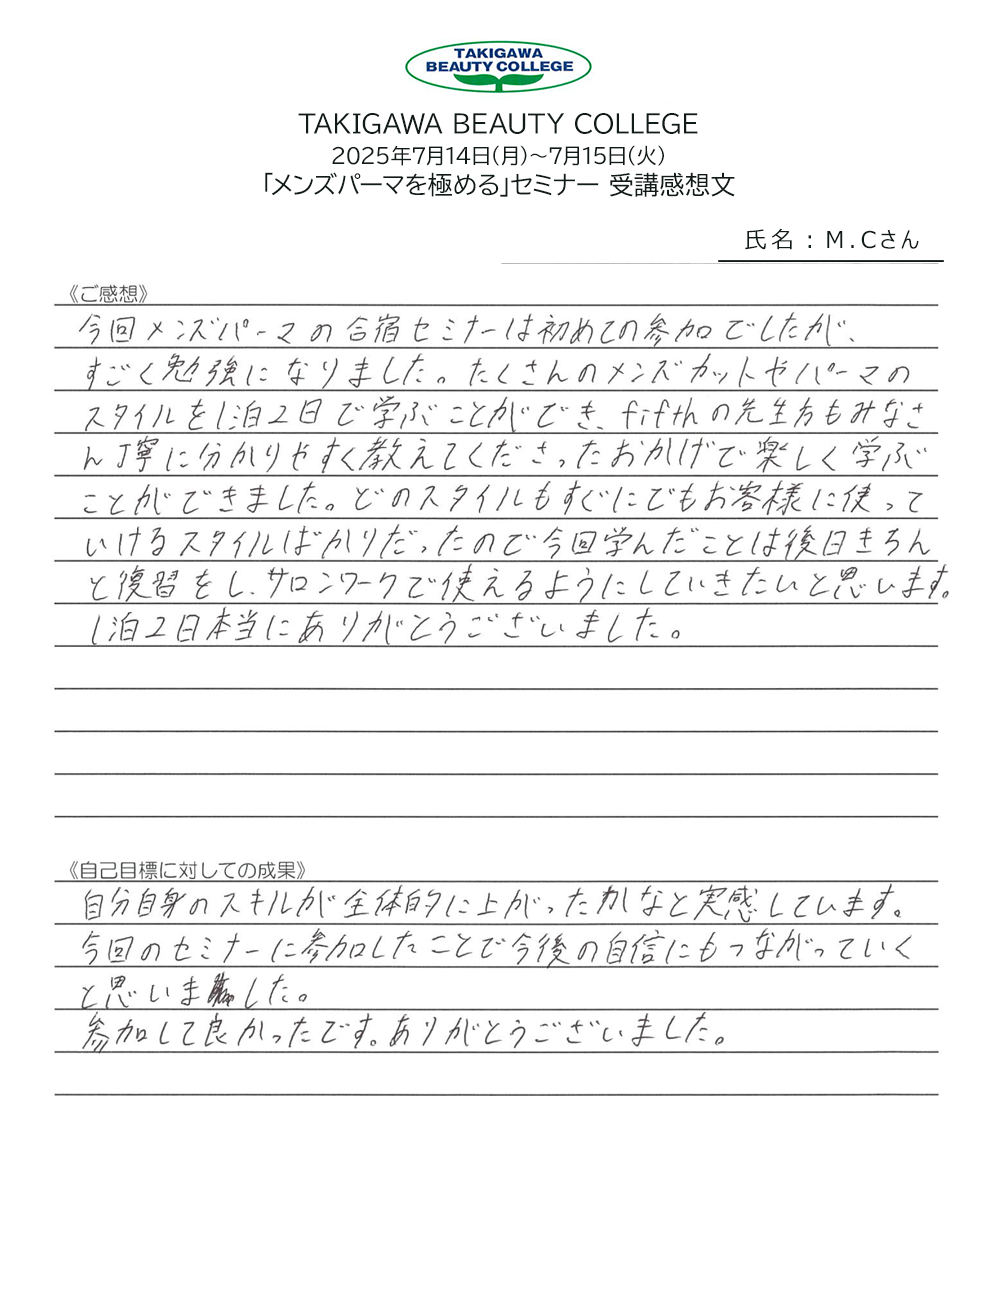 TAKIGAWA
BEAUTY COLLEGE
TAKIGAWA BEAUTY COLLEGE
2025年7月14日(月)～7月15日(火)
「メンズパーマを極める」セミナー 受講感想文
氏名：M.Cさん
《ご感想》
今回メンズパーマの合宿セミナーは初めての参加でしたが、
すごく勉強になりました。たくさんのメンズカットやパーマの
スタイルを1泊2日で学ぶことができ、fifthの先生方もみなさ
ん丁寧に分かりやすく教えてくださったおかげで楽しく学ぶ
ことができました。どのスタイルもすぐにでもお客様に使って
いけるスタイルばかりだったので今回学んだことは後日きちん
と復習をし、サロンワークで使えるようにしていきたいと思います。
1泊2日本当にありがとうございました。
《自己目標に対しての成果》
自分自身のスキルが全体的に上がったかなと実感しています。
今回のセミナーに参加したことで今後の自信にもつながっていく
と思いました。
参加して良かったです。ありがとうございました。